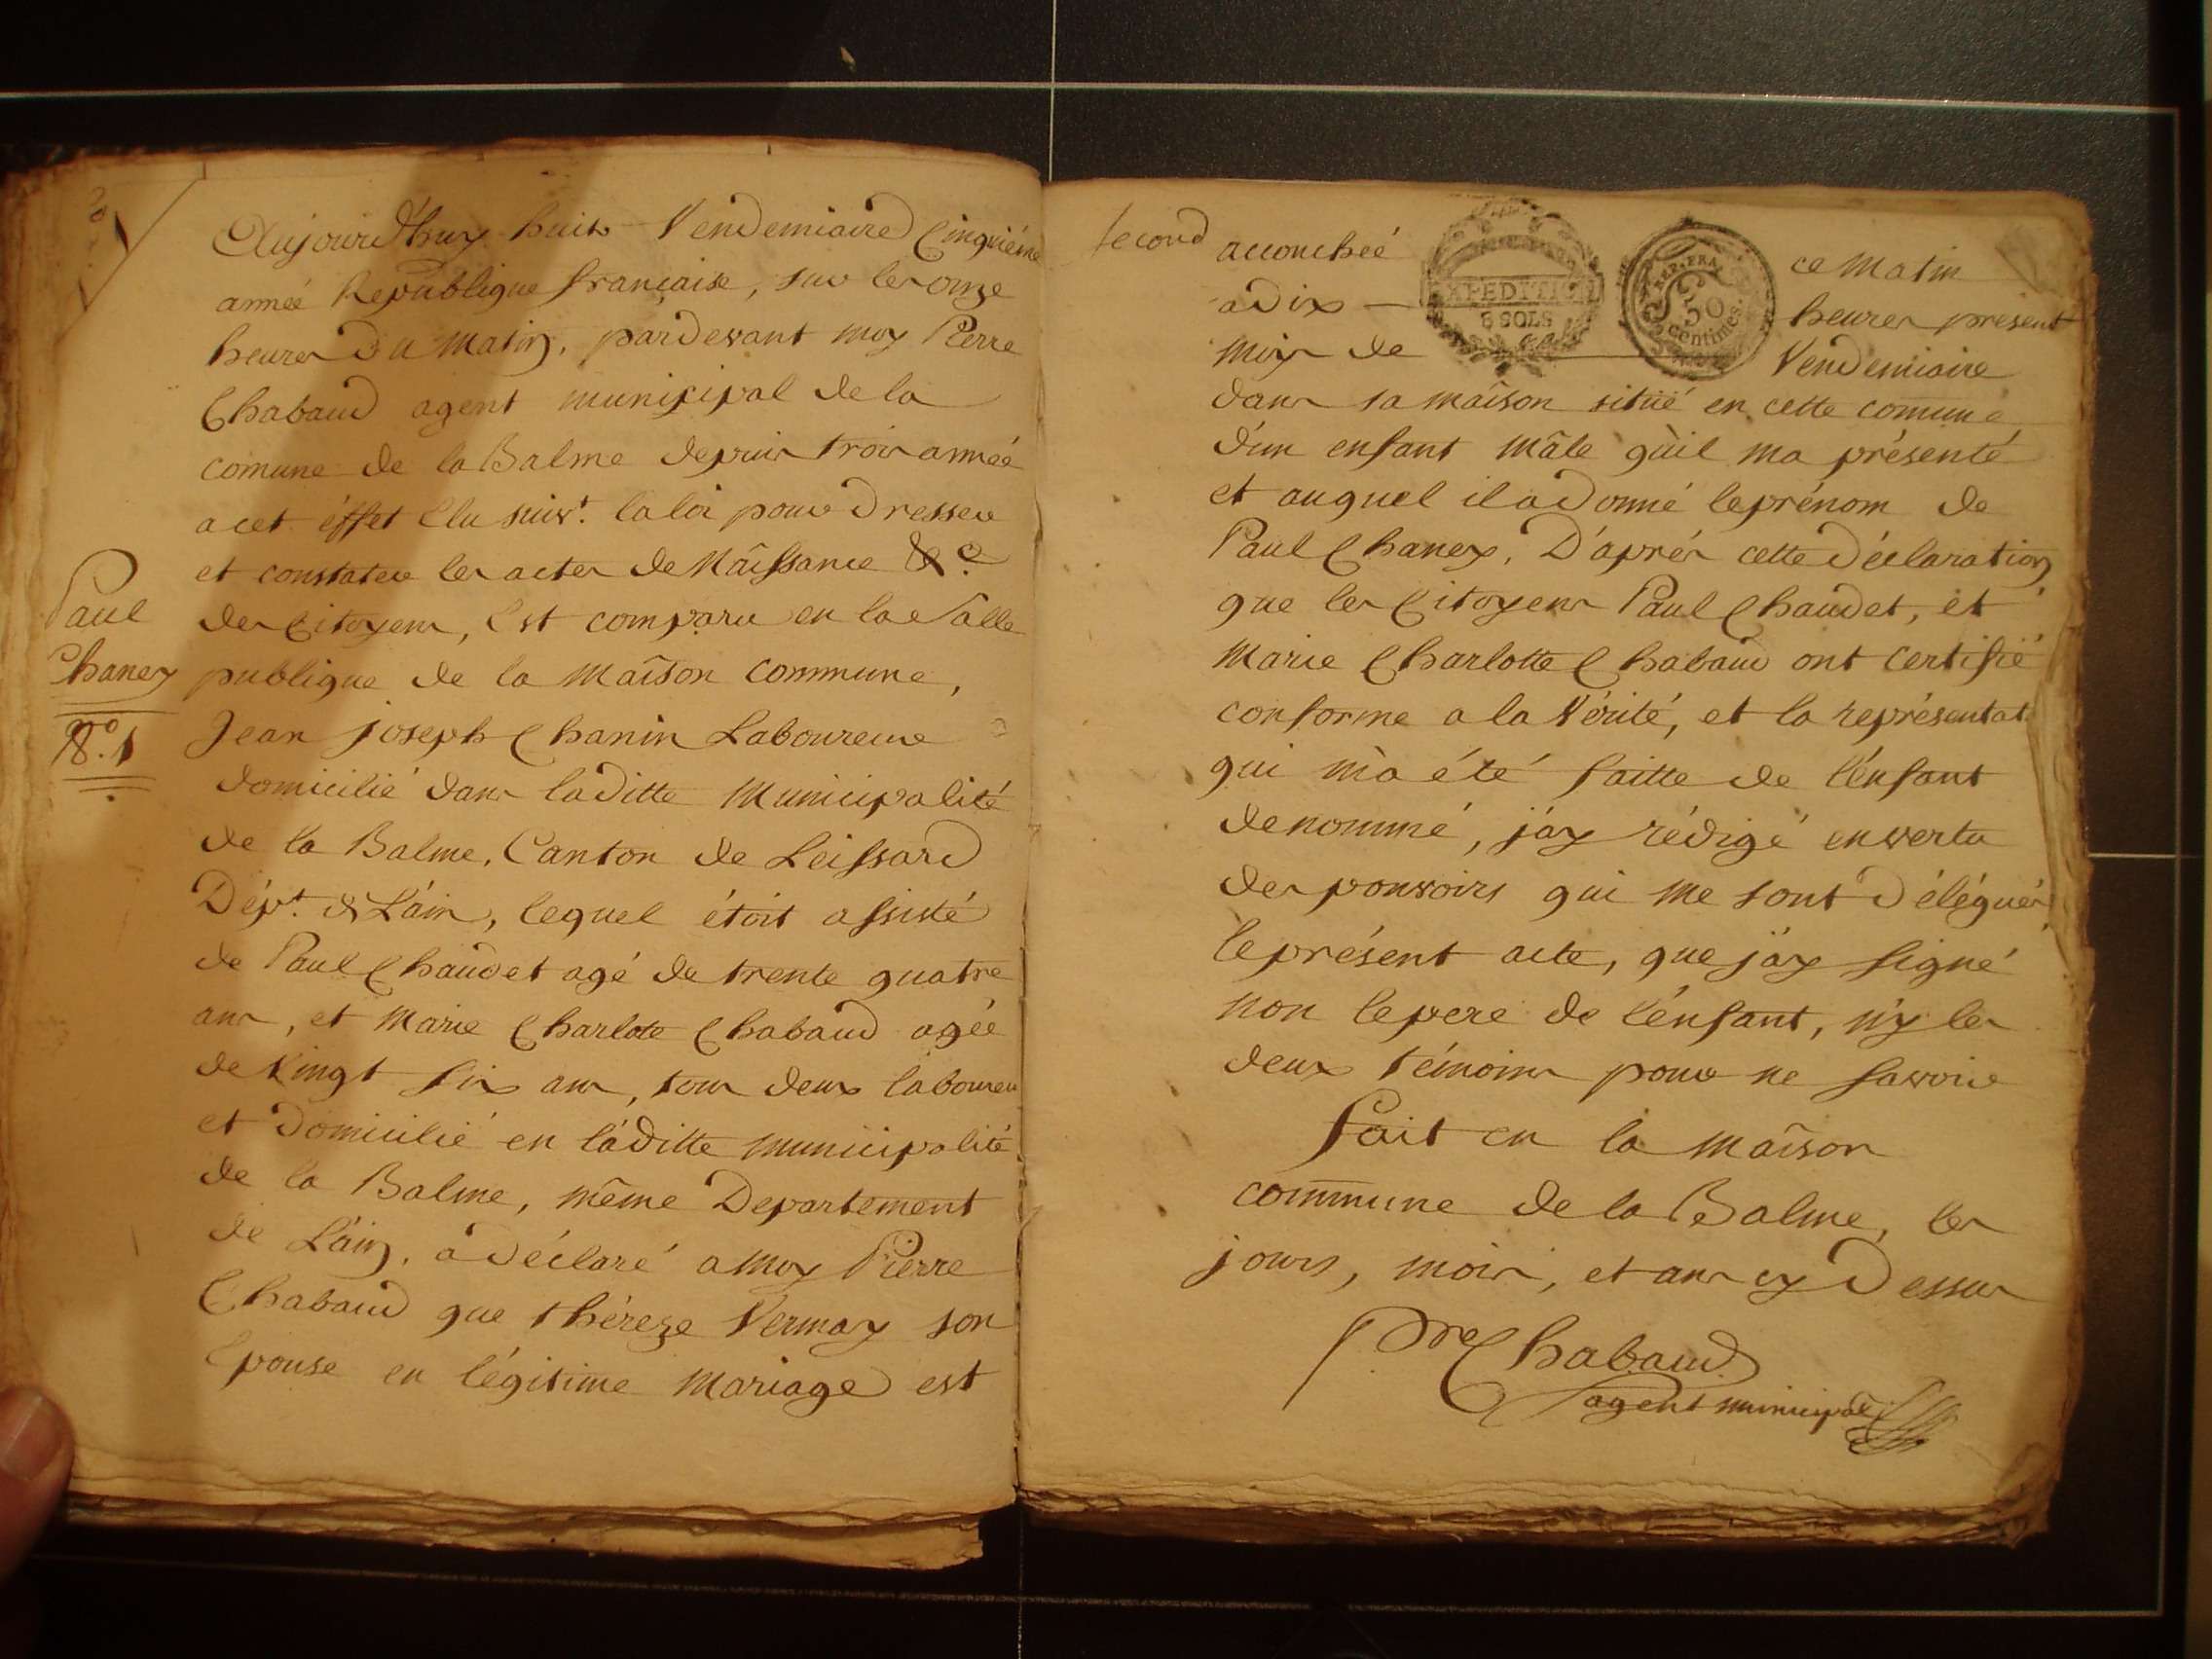 Aujourd'huy huit Vendemiaire Cinquiéme
année Republique francaise, sur les onze
heures du matin, pardevant moy Pierre
Chabaud agent municipal de la
comune de la Balme depuis trois année
a cet éffet Elu suivt. la loi pour dresser
et constater les actes de Naîssance &c
Paul
des Citoyens, Est comparu en la Salle
Chanex
publique de la Maîson Commune,
No. 1
Jean joseph Chanin Laboureur
domicilié dans laditte Municipalité
de la Balme, Canton de Leissard
Dépt. de L'ain, lequel étoit assisté
de Paul Chaudet agé de trente quatre
ans, et Marie Charlote Chabaud agée
de Vingt six ans, tous deux laboureu
et domicilié en láditte municipalité
de la Balme, même Departement
de L'ain, à déclaré a moy Pierre
Chabaud que thérèze Vermay son
Epouse en légitime Mariage est
second
accouchéé ce Matin
EXPEDITION
8 SOLS
REP. FRA.
50
centimes.
a dix — heures présent
Mois de — Vendemiaire
dans sa maîson sitüé en cette comune
d'un enfant Mâle qu'il ma présenté
et auquel il a donné le prénom de
Paul Chanex, D'aprés cette déclaration
que les Citoyens Paul Chaudet, et
Marie Charlotte Chabaud ont certifié
conforme a la Vérité, et la représentat
qui m'a été faitte de l'énfant
denommé, j'ay rédigé en vertu
des pouvoirs qui me sont délégués
le présent acte, que j'ay signé
non le pere de l'énfant, n'y les
deux témoins pour ne savoir
fait en la Maîson
commune de la Balme, les
jours, mois, et ans cy dessus
Pre Chabaud
agent municipal